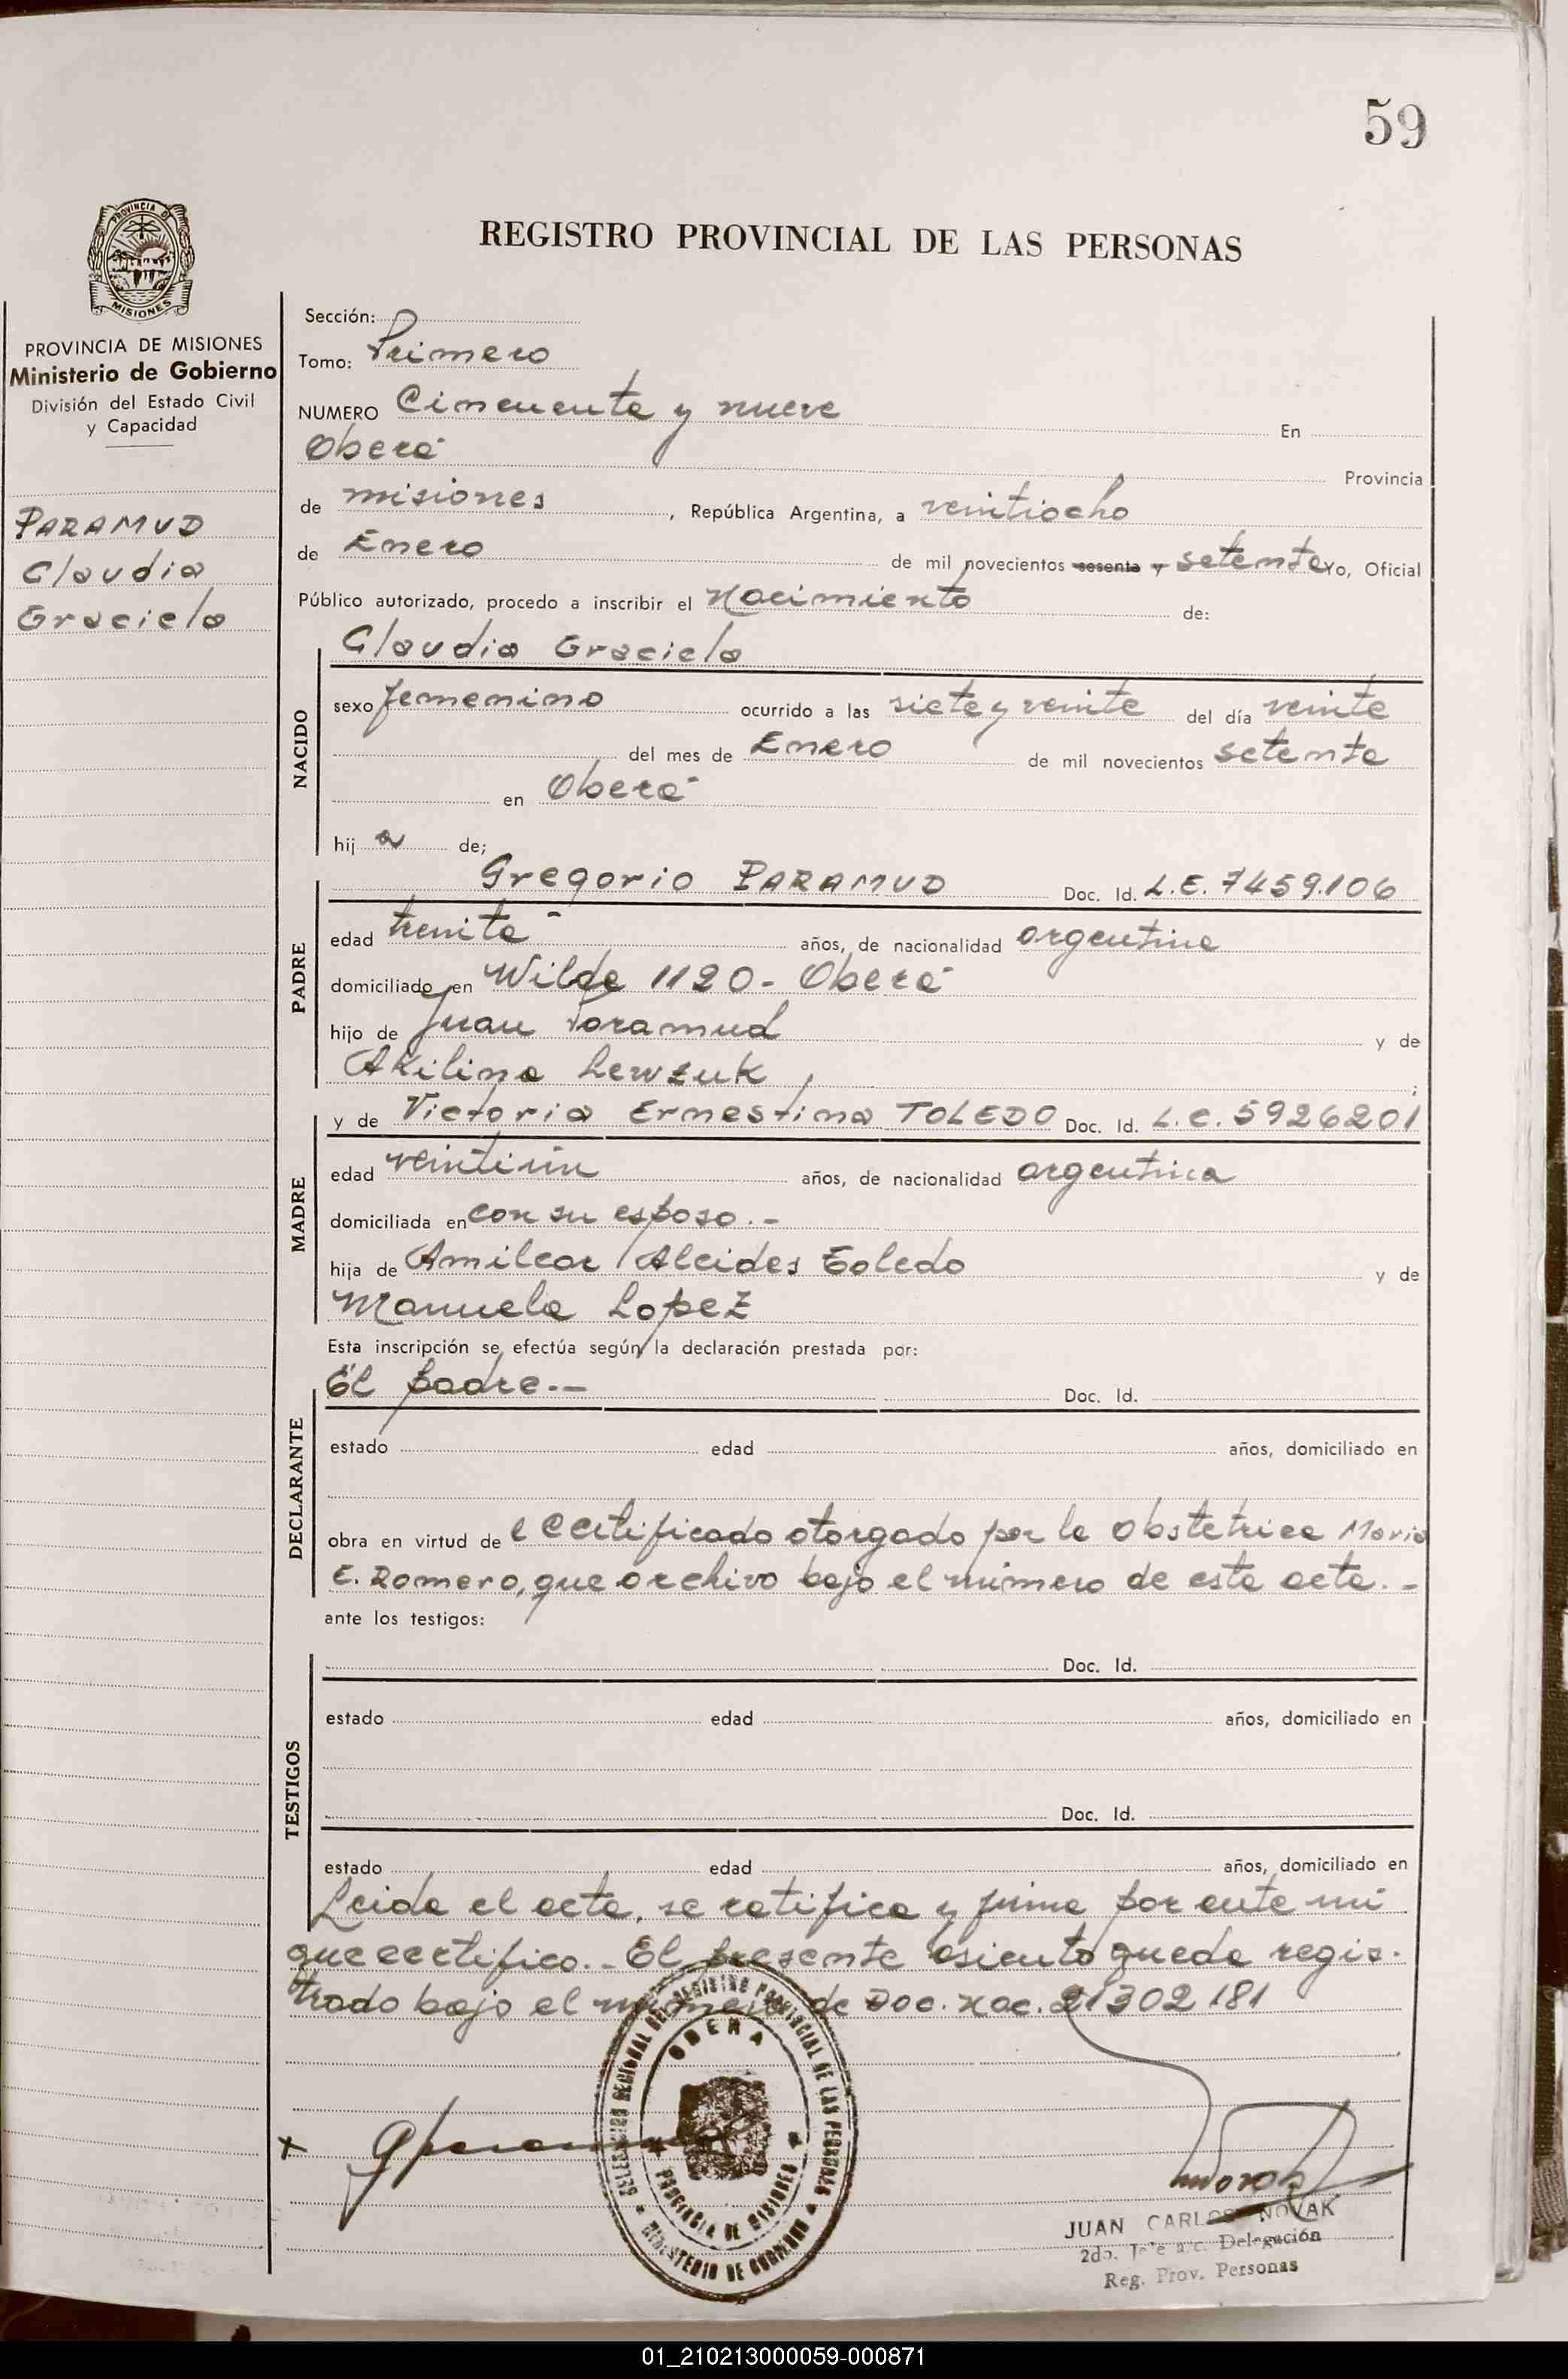 59
PROVINCIA DE
MISIONES
REGISTRO PROVINCIAL DE LAS PERSONAS
PROVINCIA DE MISIONES
Ministerio de Gobierno
División del Estado Civil
y Capacidad
PARAMUD
Claudia
Graciela
Sección:
Tomo: Primero
NUMERO Cincuenta y nueve En
Oberá Provincia
de misiones, República Argentina, a veintiocho
de Enero de mil novecientos sesenta y setenta yo, Oficial
Público autorizado, procedo a inscribir el Nacimiento de:
Claudia Graciela
NACIDO
sexo femenino ocurrido a las siete y veinte del día veinte
del mes de Enero de mil novecientos setenta
en Oberá
hija de;
Gregorio PARAMUD Doc. Id. L.E. 7459.106
PADRE
edad treinta años, de nacionalidad argentina
domiciliado en Wilde 1120- Oberá
hijo de Juan Paramud y de
Akilina Lewzuk ;
y de Victoria Ernestina TOLEDO Doc. Id. L.C. 5926201
MADRE
edad veintiún años, de nacionalidad argentina
domiciliada en con su esposo.-
hija de Amilcar Alcides Toledo y de
Manuela Lopez
Esta inscripción se efectúa según la declaración prestada por:
El padre.- Doc. Id.
DECLARANTE
estado edad años, domiciliado en
obra en virtud de l certificado otorgado por la Obstetrica Maria
E. Romero, que archivo bajo el número de esta acta.-
ante los testigos:
Doc. Id.
TESTIGOS
estado edad años, domiciliado en
Doc. Id.
estado edad años, domiciliado en
Leida el acta, se ratifica y firma por ante mi
que certifico.- El presente asiento queda regis-
trado bajo el número de Doc. Nac. 21302181
OBERA
PROVINCIA DE MISIONES
MINISTERIO DE GOBIERNO
DELEGACION REGIONAL DEL REGISTRO PROVINCIAL DE LAS PERSONAS
JUAN CARLOS NOVAK
2do. Jefe a/c. Delegación
Reg. Prov. Personas
01_210213000059-000871